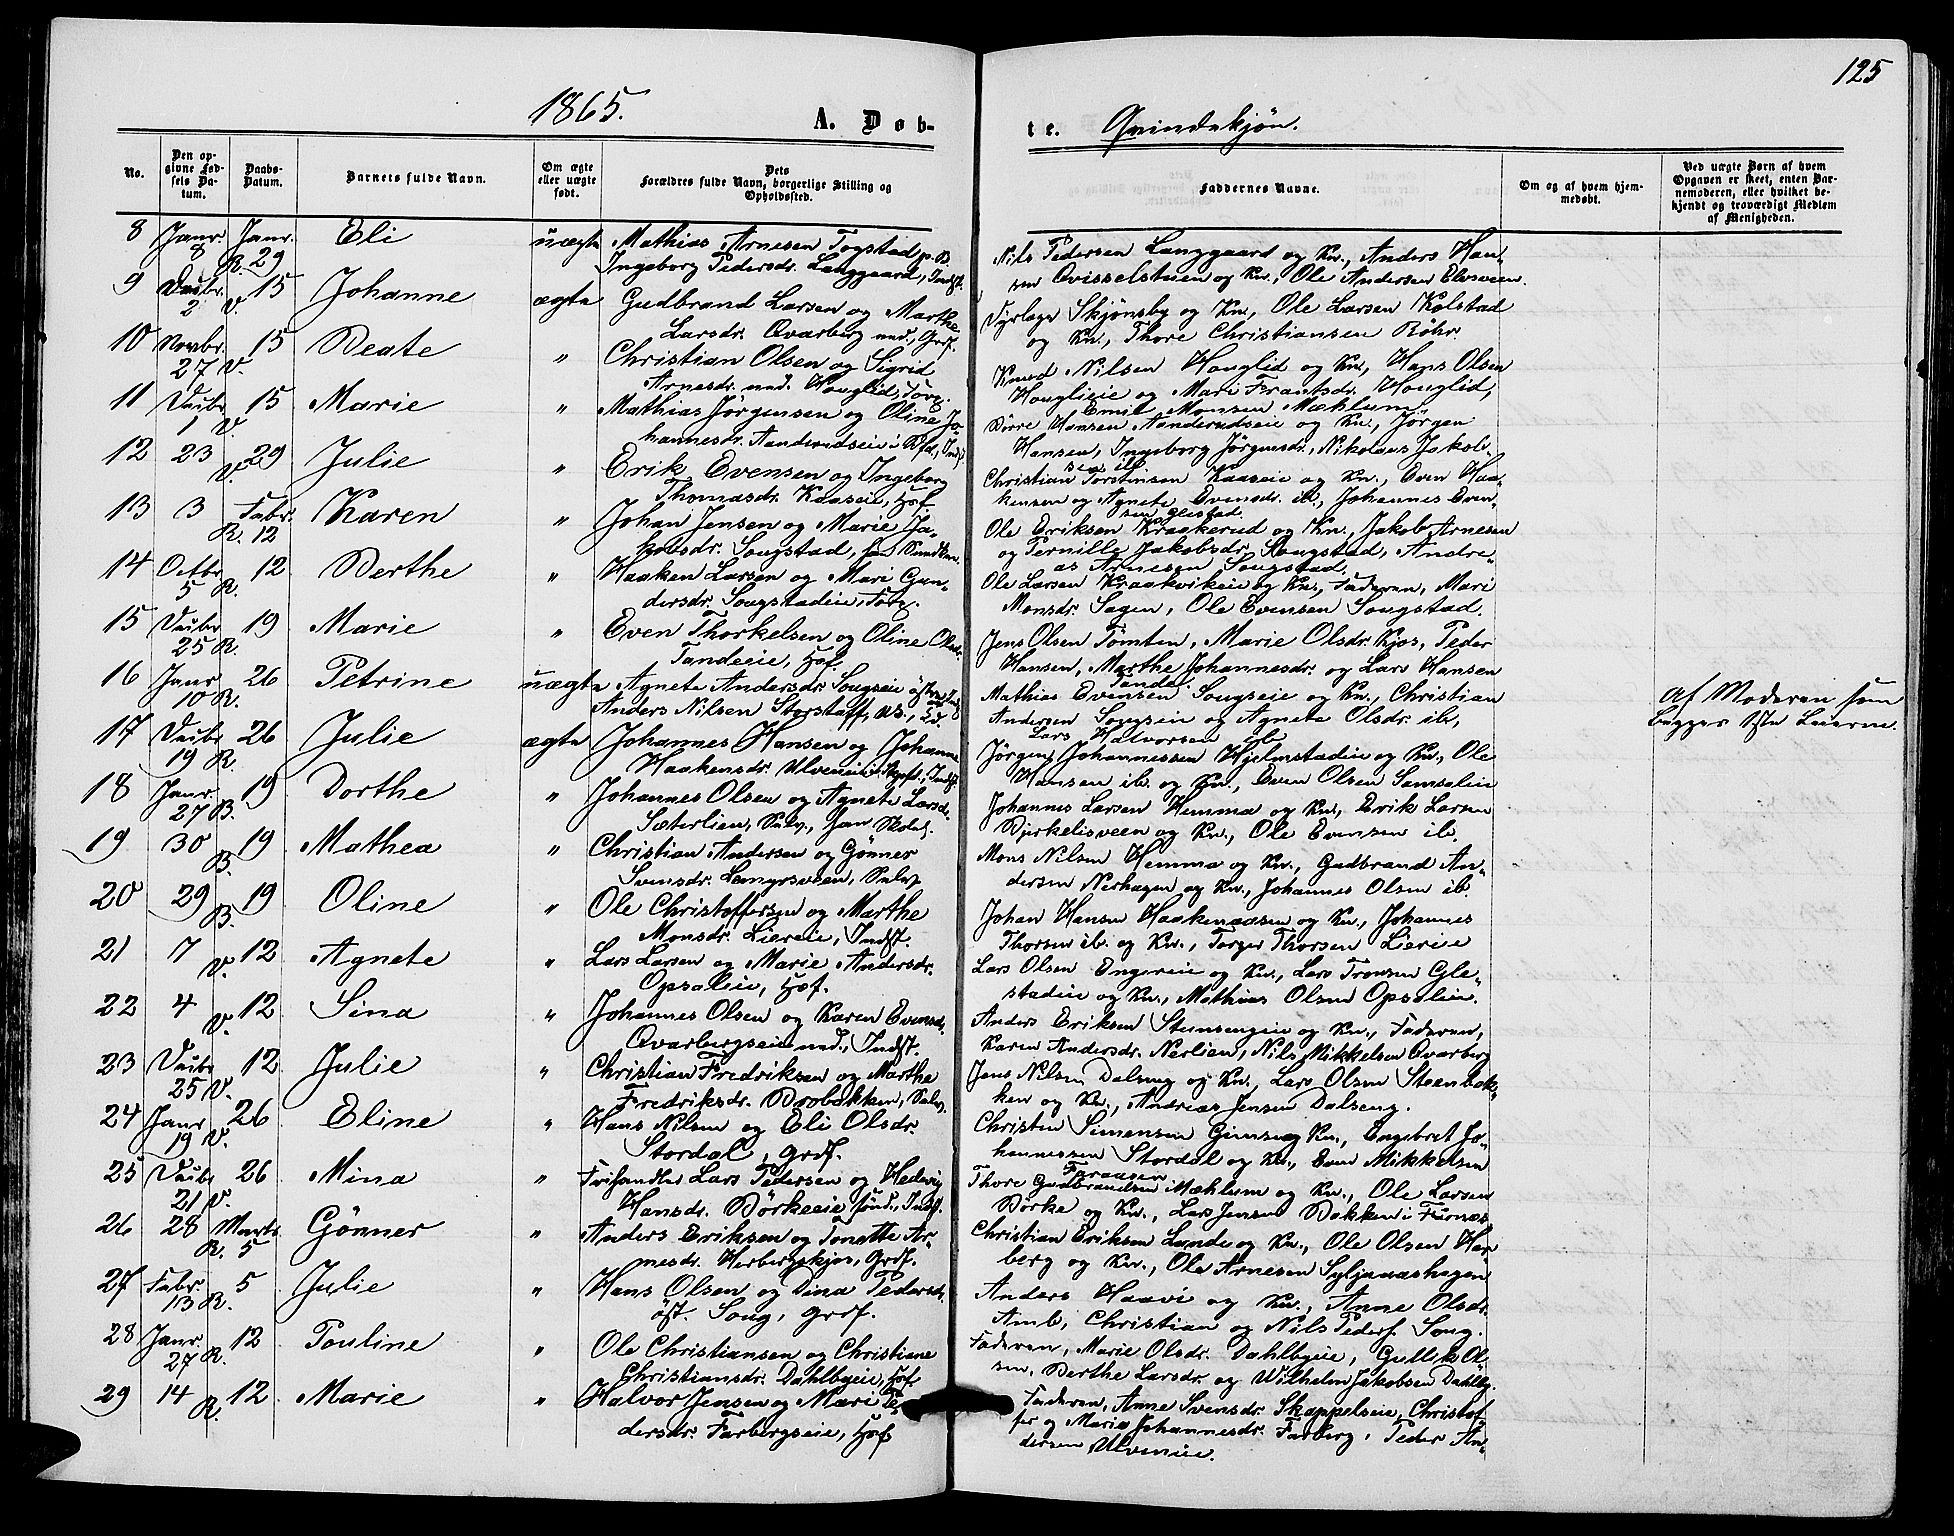 125
1865. A. Døb-
te. Qvindekjøn.
No. Den opgivne Fødsels Datum. Daabs-Datum. Barnets fulde Navn. Om ægte eller uægte født. Dets Forældres fulde Navn, borgerlige Stilling og Opholdssted.
Faddernes Navne. Om og af hvem hjemmedøbt. Ved uægte Børn af hvem Opgaven er skeet, enten Barnemoderen, eller hvilket bekjendt og troværdigt Medlem af Menigheden.
8 Janr. 8 Janr. R. 29 Eli uægte Mathias Arnesen Togstad
Ingeborg Pedersdr. Langgaard, Indst.
Nils Pedersen Langgaard og Kn., Anders Han-
sen Qvisselstuen og Kn., Ole Andersen Elvsveen.
9 Decbr. 2 V. 15 Johanne ægte Gudbrand Larsen og Marthe
Larsdr. Qvarberg ned., Grdf.
Skjønsby og Kn., Ole Larsen Kolstad
og Kn., Thore Christiansen Röhr.
10 Novbr. 27 V. 15 Beate " Christian Olsen og Sigrid
Arnesdr. ned. Houglid, Torp.
Knud Nilsen Houglid og Kn., Hans Olsen
Houglieie og Mari Frantsdr. Houglid,
Emil Monsen Mæhlum
11 Decbr. 1 V. 15 Marie " Mathias Jørgensen og Oline Jo-
hannesdr. Aanderudseie
Børre Hansen Aanderudseie og Kn., Jørgen
Hansen, Ingeborg Jörgensdr., Nikolaus Jakob-
sen ib.
12 23 V. 29 Julie " Erik Evensen og Ingeborg
Thomasdr. Kaaseie, Hof
Christian Torstensen Kaaseie og Kn., Even Haa-
kensen og Agnete Evensdr. ib., Johannes Even-
sen Glestad.
13 3 Febr. R. 12 Karen " Johan Jensen og Marie Ja-
kobsdr. Sougstad,
Ole Eriksen Kraakerud og Kn., Jakob Arnesen
og Pernille Jakobsdr. Sougstad, Andre-
as Arnesen Sougstad.
14 Octbr. 5 R. 12 Berthe " Haaken Larsen og Mari Gun-
dersdr. Sougstadeie, Torp.
Ole Larsen Kraakvikeie og Kn., Faderen, Mari
Monsdr. Sagen, Ole Evensen Sougstad.
15 Decbr. 25 R. 19 Marie " Even Thorkelsen og Oline Olsdr.
Tandeeie, Hof.
Jens Olsen Tömten, Marie Olsdr. Kjos, Peder
Hansen, Marthe Johannesdr. og Lars Hansen
Tande
16 Janr. 10 R. 26 Petrine uægte Agnete Andersdr. Sougseie
Anders Nilsen Storstaff,
Mathias Evensen Sougseie og Kn., Christian
Andersen Sougseie og Agnete Olsdr. ib.,
Lars Halvorsen ib.
Af Moderen som
17 Decbr. 19 R. 26 Julie ægte Johannes Hansen og Johanne
Haakensdr. Ulveneie
Jørgen Johannessen Hjelmstadeie og Kn., Ole
Hansen ib. og Kn., Even Olsen Samsaleie
18 Janr. 27 B. 19 Dorthe " Johannes Olsen og Agnete Larsdr.
Sæterlien, Selv.,
Johannes Larsen Hemma og Kn., Erik Larsen
Bjerkelisveen og Kn., Ole Evensen ib.
19 30 B. 19 Mathea " Christian Andersen og Gönner
Svensdr. Lemyrsveen, Selv.
Mons Nilsen Hemma og Kn., Gudbrand An-
dersen Nerhagen og Kn., Johannes Olsen ib.
20 29 B. 19 Oline " Ole Christoffersen og Marthe
Monsdr. Liereie, Indst.
Johan Hansen Haakenaasen og Kn., Johannes
Thorsen ib. og Kn., Torger Thorsen Liereie
21 7 V. 12 Agnete " Lars Larsen og Marie Andersdr.
Opsaleie, Hof.
Lars Olsen Engereie og Kn., Lars Tronsen Gle-
stadeie og Kn., Mathias Olsen Opsaleie.
22 4 V. 12 Sina " Johannes Olsen og Karen Evensdr.
Qvarbergseie ned., Indst.
Anders Eriksen Stensengeie og Kn., Faderen,
Karen Andersdr. Nerlien, Nils Mikkelsen Qvarberg
23 Decbr. 25 V. 12 Julie " Christian Fredriksen og Marthe
Fredriksdr. Brobakken, Selv.
Jens Nilsen Dalseng og Kn., Lars Olsen Steenbak-
ken og Kn., Andreas Jensen Dalseng.
24 Janr. 19 V. 26 Eline " Hans Nilsen og Eli Olsdr.
Stordal, Grdf.
Christen Simensen Gimse og Kn., Engebret Jo-
hannessen Stordal og Kn., Even Mikkelsen
Faraasen
25 Decbr. 21 V. 26 Mina " Frihandler Lars Pedersen og Hedevig
Hansdr. Börkeeie sönd., Indf.
Thore Gudbrandsen Mæhlum og Kn., Ole Larsen
Börke og Kn., Lars Jensen Bakken i Furnæs
26 28 Marts R. 5 Gönner " Anders Eriksen og Tonette Ar-
nesdr. Herbergskjos, Grdf.
Christian Eriksen Lunde og Kn., Ole Olsen Har-
berg og Kn., Ole Arnesen Syljuaashagen
27 Febr. 13 R. 5 Julie " Hans Olsen og Dina Pedersdr.
öst. Soug, Grdf.
Anders Haavi og Kn., Anne Olsdr.
Amb, Christian og Nils Peders. Soug.
28 Janr. 27 R. 12 Pouline " Ole Christiansen og Christiane
Christiansdr. Dahlbyeie, Hof
Faderen, Marie Olsdr. Dahlbyeie, Gullik Ol-
sen, Berthe Larsdr. og Wilhelm Jakobsen Dahlby.
29 14 R. 12 Marie " Halvor Jensen og Mari Pe-
dersdr. Farbergseie, Hof
Faderen, Anne Svensdr. Skappelseie, Christof-
fer og Marie Johannesdr. Farberg, Peder An-
dersen Ulveneie.